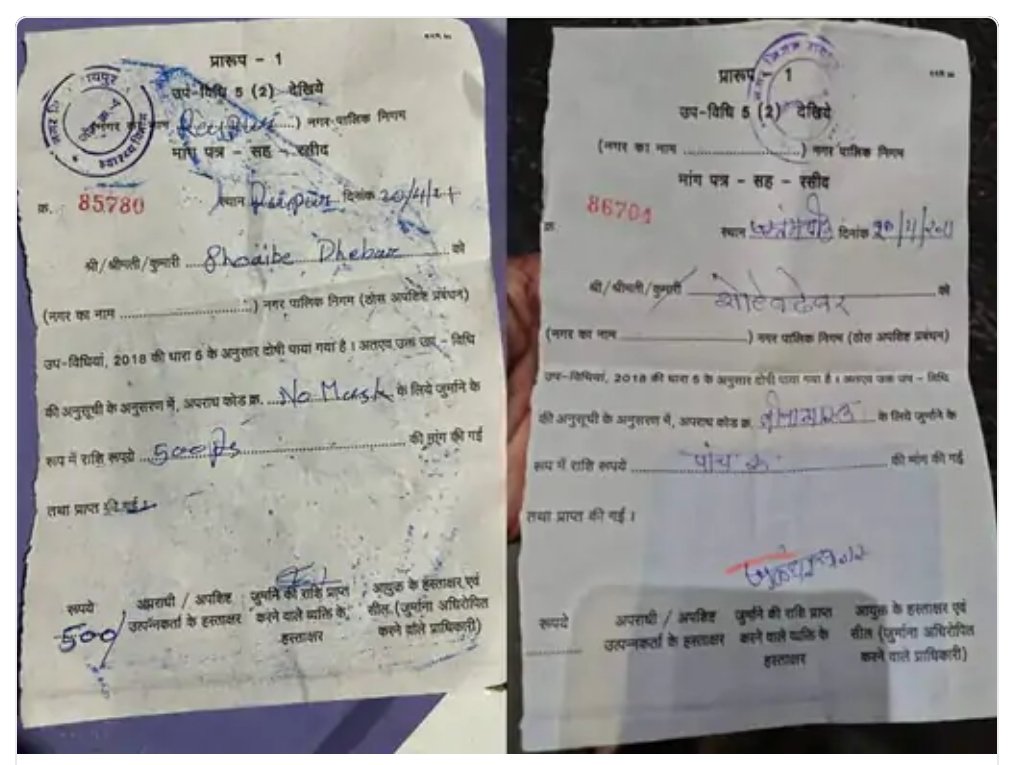 प्रारूप - 1
उप-विधि 5 (2) देखिये
Raipur ) नगर पालिक निगम
मांग पत्र - सह - रसीद
क्र. 85780 स्थान Raipur दिनांक 20/4/21
श्री/श्रीमती/कुमारी Shoaibe Dhebar को
(नगर का नाम ..............................) नगर पालिक निगम (ठोस अपशिष्ट प्रबंधन)
उप-विधियां, 2018 की धारा 5 के अनुसार दोषी पाया गया है। अतएव उक्त उप - विधि
की अनुसूची के अनुसरण में, अपराध कोड क्र. ...No Mask के लिये जुर्माने के
रूप में राशि रूपये ..500 Rs.............................. की मांग की गई
तथा प्राप्त की गई।
रूपये अपराधी / अपशिष्ट जुर्माने की राशि प्राप्त आयुक्त के हस्ताक्षर एवं
500/ उत्पन्नकर्ता के हस्ताक्षर करने वाले व्यक्ति के सील (जुर्माना अधिरोपित
हस्ताक्षर करने वाले प्राधिकारी)
प्रारूप 1
उप-विधि 5 (2) देखिये
(नगर का नाम ........................) नगर पालिक निगम
मांग पत्र - सह - रसीद
क्र. 86701 स्थान दिनांक 20/4/2021
श्री/श्रीमती/कुमारी को
(नगर का नाम ..............................) नगर पालिक निगम (ठोस अपशिष्ट प्रबंधन)
उप-विधियां, 2018 की धारा 5 के अनुसार दोषी पाया गया है। अतएव उक्त उप - विधि
की अनुसूची के अनुसरण में, अपराध कोड क्र. के लिये जुर्माने के
रूप में राशि रूपये ............पांच ............ की मांग की गई
तथा प्राप्त की गई।
रूपये अपराधी / अपशिष्ट जुर्माने की राशि प्राप्त आयुक्त के हस्ताक्षर एवं
............ उत्पन्नकर्ता के हस्ताक्षर करने वाले व्यक्ति के सील (जुर्माना अधिरोपित
हस्ताक्षर करने वाले प्राधिकारी)